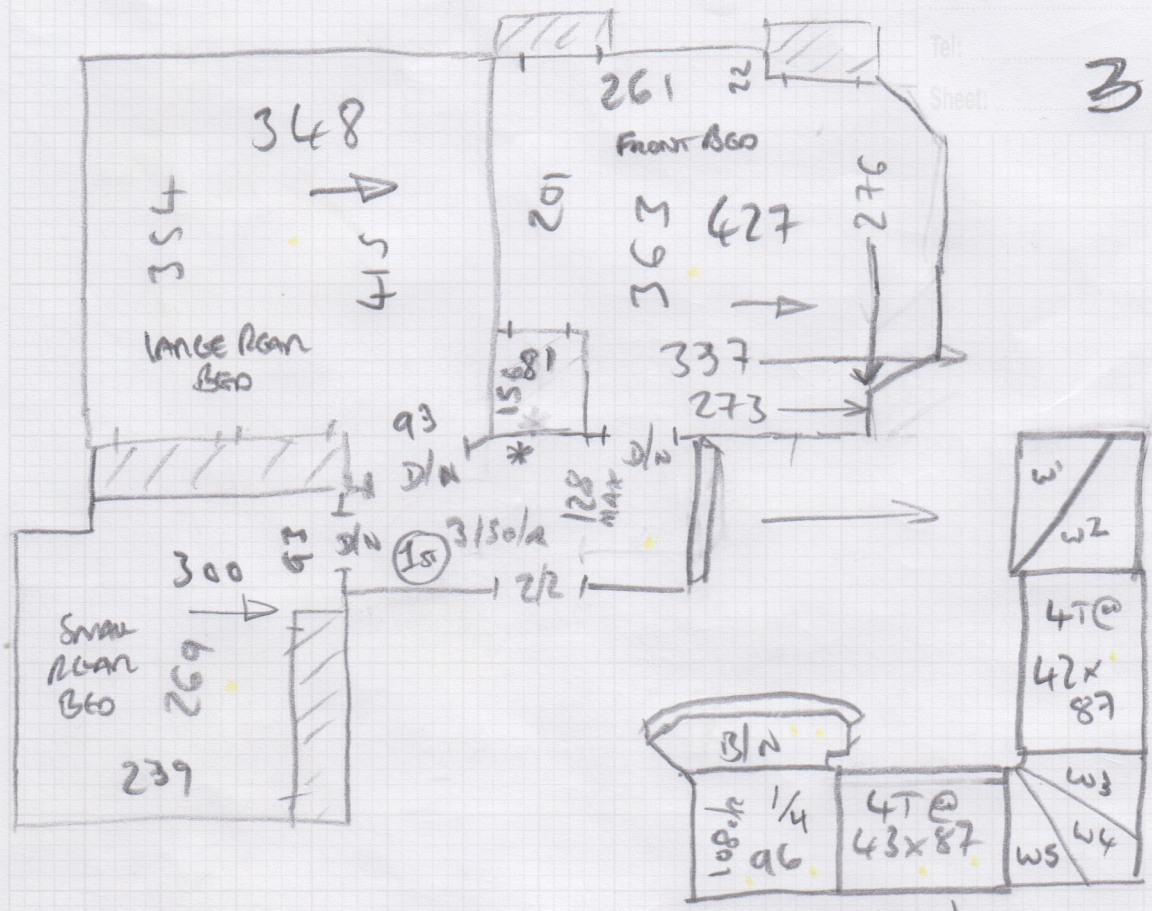 Tel:
Sheet:
3
348
354
415
LARGE REAR
BED
261
22
FRONT BED
201
363
427
276
337
273
156
81
*
*
93
D/N
D/N
128
MAX
63
D/N
1ST
3/50/R
2/2
300
SMALL
REAR
BED
269
239
W1
W2
4T@
42x
87
W3
W4
W5
B/N
1/4
96
4T@
43x87